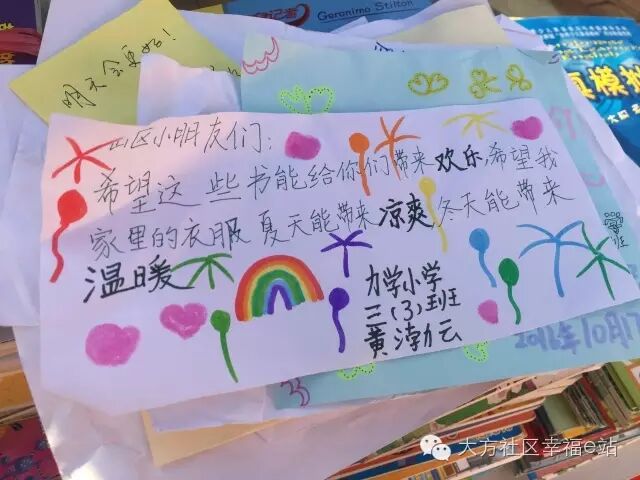 Geronimo Stilton
明天会更好！
山区小朋友们：
希望这些书能给你们带来欢乐，希望我
家里的衣服夏天能带来凉爽，冬天能带来
温暖
力学小学
三（3）班
黄渤云
2016年10月17
大方社区幸福e站